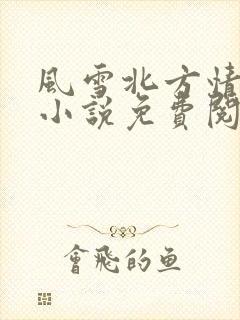 風雪北方情
小說免費閱
會飛的魚